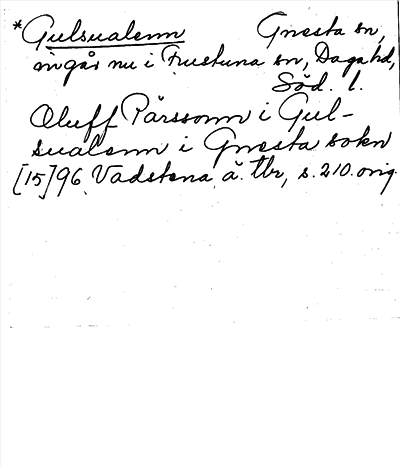 *Gulsualenn Gnesta sn,
ingår nu i Frustuna sn, Daga hd,
Söd. l.
Oluff Pärssonn i Gul-
sualenn i Gnesta sokn
[15]96 Vadstena ä. tbr, s. 210. orig.